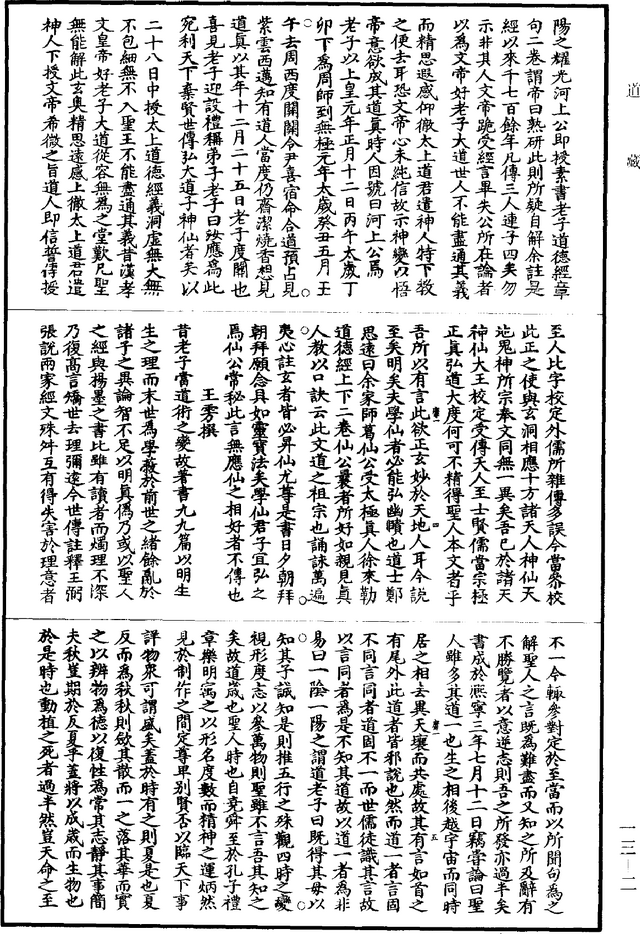 道藏
陽之耀光河上公即授素書老子道德經章
句二卷謂帝曰熟研此則所疑自解余註是
經以來千七百餘年凡傳三人連子四矣勿
示非其人文帝跪受經言畢失公所在論者
以為文帝好老子大道世人不能盡通其義
而精思遐感仰徹太上道君遣神人特下教
之便去耳恐文帝心未純信故示神變以悟
帝意欲成其道真時人因號曰河上公焉
老子以上皇元年正月十二日丙午太歲丁
卯下為周師到無極元年太歲癸丑五月壬
午去周西度關關令尹喜宿命合道預占見
紫雲西邁知有道人當度仍齋潔燒香想見
道真以其年十二月二十五日老子度關也
喜見老子迎設禮稱弟子老子曰汝應為此
宛利天下棄賢世傳弘大道子神仙者矣以
二十八日中授太上道德經義洞虛無大無
不包細無不入聖王不能盡通其義昔漢孝
文皇帝好老子大道從容無為之堂歎凡聖
無能解此玄奧精思遠感上徹太上道君遣
神人下授文帝希微之旨道人即信誓傳授
至人比字校定外儒所雜傳多誤今當參校
此正之使與玄洞相應十方諸天人神仙天
地鬼神所宗奉文同無一異矣吾已於諸天
神仙大王校定受傳天人至士賢儒當宗極
正真弘道大度何可不精得聖人本文者乎
吾所以有言此欲正玄妙於天地人耳今說
至矣明矣夫學仙者必能弘幽賾也道士鄭
思遠曰余家師葛仙公受太極真人徐來勒
道德經上下二卷仙公曩者所好如親見真
人教以口訣云此文道之祖宗也誦詠萬遍
夷心註玄者皆必昇仙尤尊是書日夕朝拜
朝拜願念具如靈寶法矣學仙君子宜弘之
焉仙公常秘此言無應仙之相好者不傳也
王雱撰
昔老子當道術之變故著書九九篇以明生
生之理而末世為學蔽於前世之緒餘亂於
諸子之異論智不足以明真偽乃或以聖人
之經與楊墨之書比雖有讀者而燭理不深
乃復高言矯世去理彌遠今世傳註釋王弼
張說兩家經文殊舛互有得失害於理意者
不一今輙參對定於至當而以所聞句為之
解聖人之言既為難盡而又知之所及辭有
不勝覽者以意逆志則吾之所發亦過半矣
書成於熙寧三年七月十二日竊嘗論曰聖
人雖多其道一也生之相後越宇宙而同時
居之相去異天壤而共處故其有言如首之
有尾外此道者皆邪說也然而道一者言固
不同言同者道固不一而世儒徒識其言故
以言同者為是不知其道故以道一者為非
易曰一陰一陽之謂道老子曰既得其母以
知其子誠知是則推五行之殊觀四時之變
視形度志以參萬物則聖雖不言吾其知之
矣故道歲也聖人時也自堯舜至於孔子禮
章樂明寓之以形名度數而精神之運炳然
見於制作之間定尊卑別賢否以臨天下事
詳物衆可謂盛矣蓋於時有之則夏是也夏
反而為秋秋則歛其散而一之落其華而實
之以辨物為德以復性為常其志靜其事簡
夫秋豈期於反夏乎蓋將以成歲而生物也
於是時也動植之死者過半然豈天命之至
四
五
一三―二